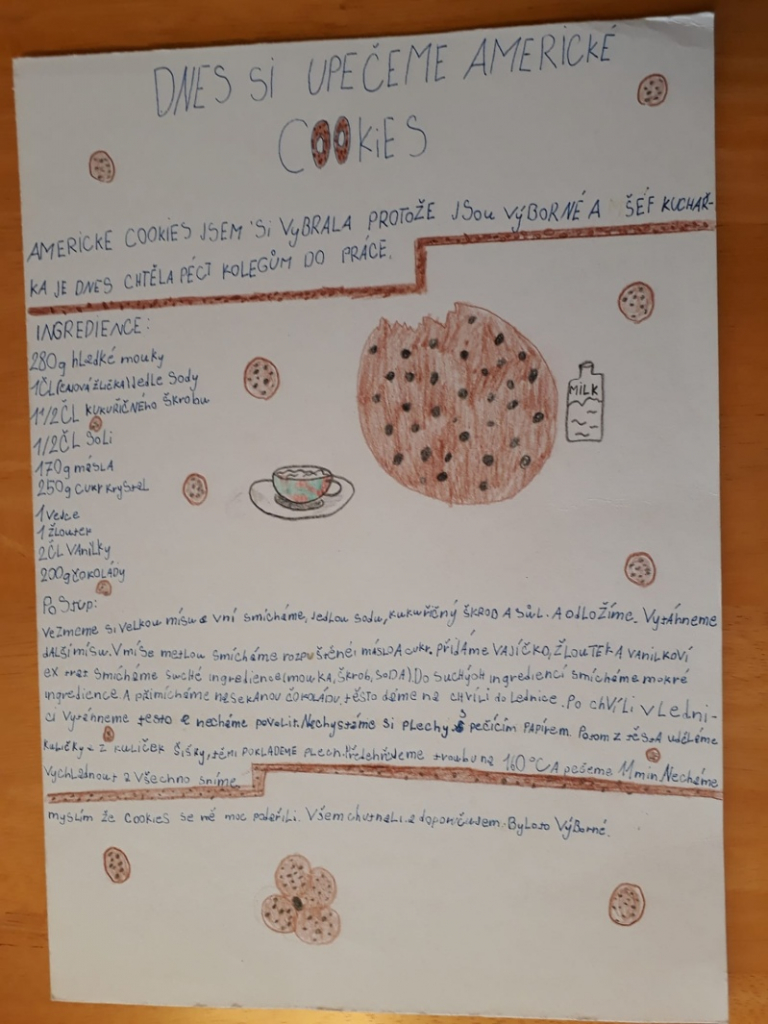 DNES SI UPEČEME AMERICKÉ
COOKIES
AMERICKE COOKIES JSEM SI VYBRALA PROTOŽE JSOU VÝBORNÉ A ŠÉF KUCHAŘ-
KA JE DNES CHTĚLA PÉCT KOLEGŮM DO PRÁCE.
INGREDIENCE:
280g hladké mouky
1ČL (čajová žlička) Jedle Sody
1 1/2 ČL KUKUŘIČNÉHO ŠKROBU
1/2 ČL Soli
170g másla
250g cukr krystal
1 vejce
1 žloutek
2ČL Vanilky
200g čokolády
MILK
PoStup:
Vezmeme si velkou mísu a vní smícháme, Jedlou sodu, kukuřičný ŠKROB A SŮL. A ODLOŽÍME. Vytáhneme
další mísu. V míse metlou smícháme rozpuštěnéi máslo A cukr. PŘIDÁME VAJÍČKO, ŽLOUTEK A VANILKOVÍ
extrat smícháme suché ingredience (mouka, škrob, SODA). Do suchých ingrediencí smícháme mokré
ingredience. A přimícháme nasekanou čokoládu, těsto dáme na chvíli do lednice. Po chvíli v Ledni-
ci vytáhneme testo a necháme povolit. Nachystáme si plechy s pečícím papírem. Potom z těsta uděláme
kuličky a z kuliček šišky, těmi pokládeme plech. Předehřejeme troubu na 160°C A pečeme 11min. Necháme
vychladnout a všechno sníme.
myslím že cookies se mě moc podařili. Všem chutnali a doporučujem. Bylo to Výborné.